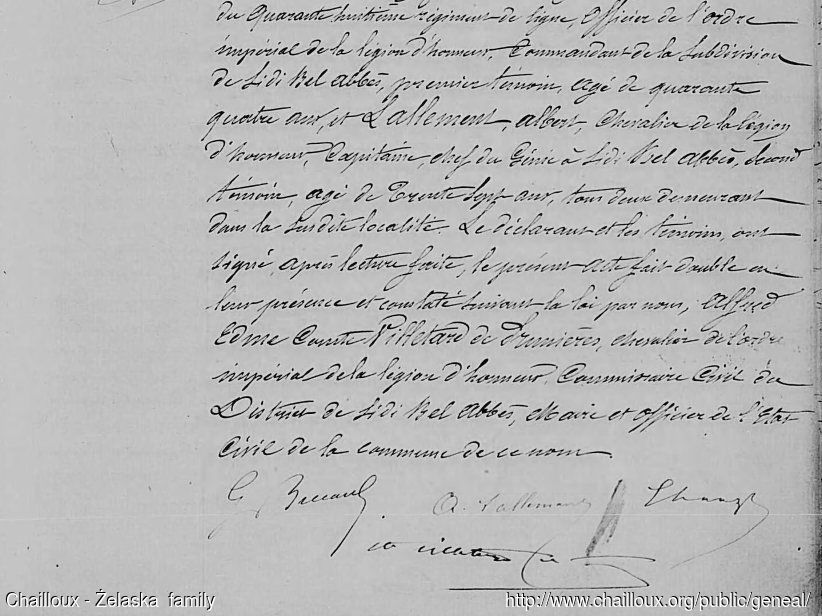 du Quarante huitième régiment de ligne, Officier de l'ordre
impérial de la légion d'honneur, Commandant de la Subdivision
de Sidi Bel Abbès, premier témoin, agé de quarante
quatre ans, et Lallement, Albert, Chevalier de la légion
d'honneur, Capitaine, chef du Génie à Sidi Bel Abbès, Second
témoin, agé de Trente Sept ans, tous deux demeurant
dans la susdite localité. Le déclarant et les témoins, ont
signé, après lecture faite, le présent acte fait double en
leur présence et constaté suivant la loi par nous, Alfred
Edme Comte Villetard de Prunières, chevalier de l'ordre
impérial de la légion d'honneur. Commissaire Civil du
District de Sidi Bel Abbès, Maire et Officier de l'Etat
Civil de la commune de ce nom.
A. Lallement
Chailloux - Żelaska family
http://www.chailloux.org/public/geneal/